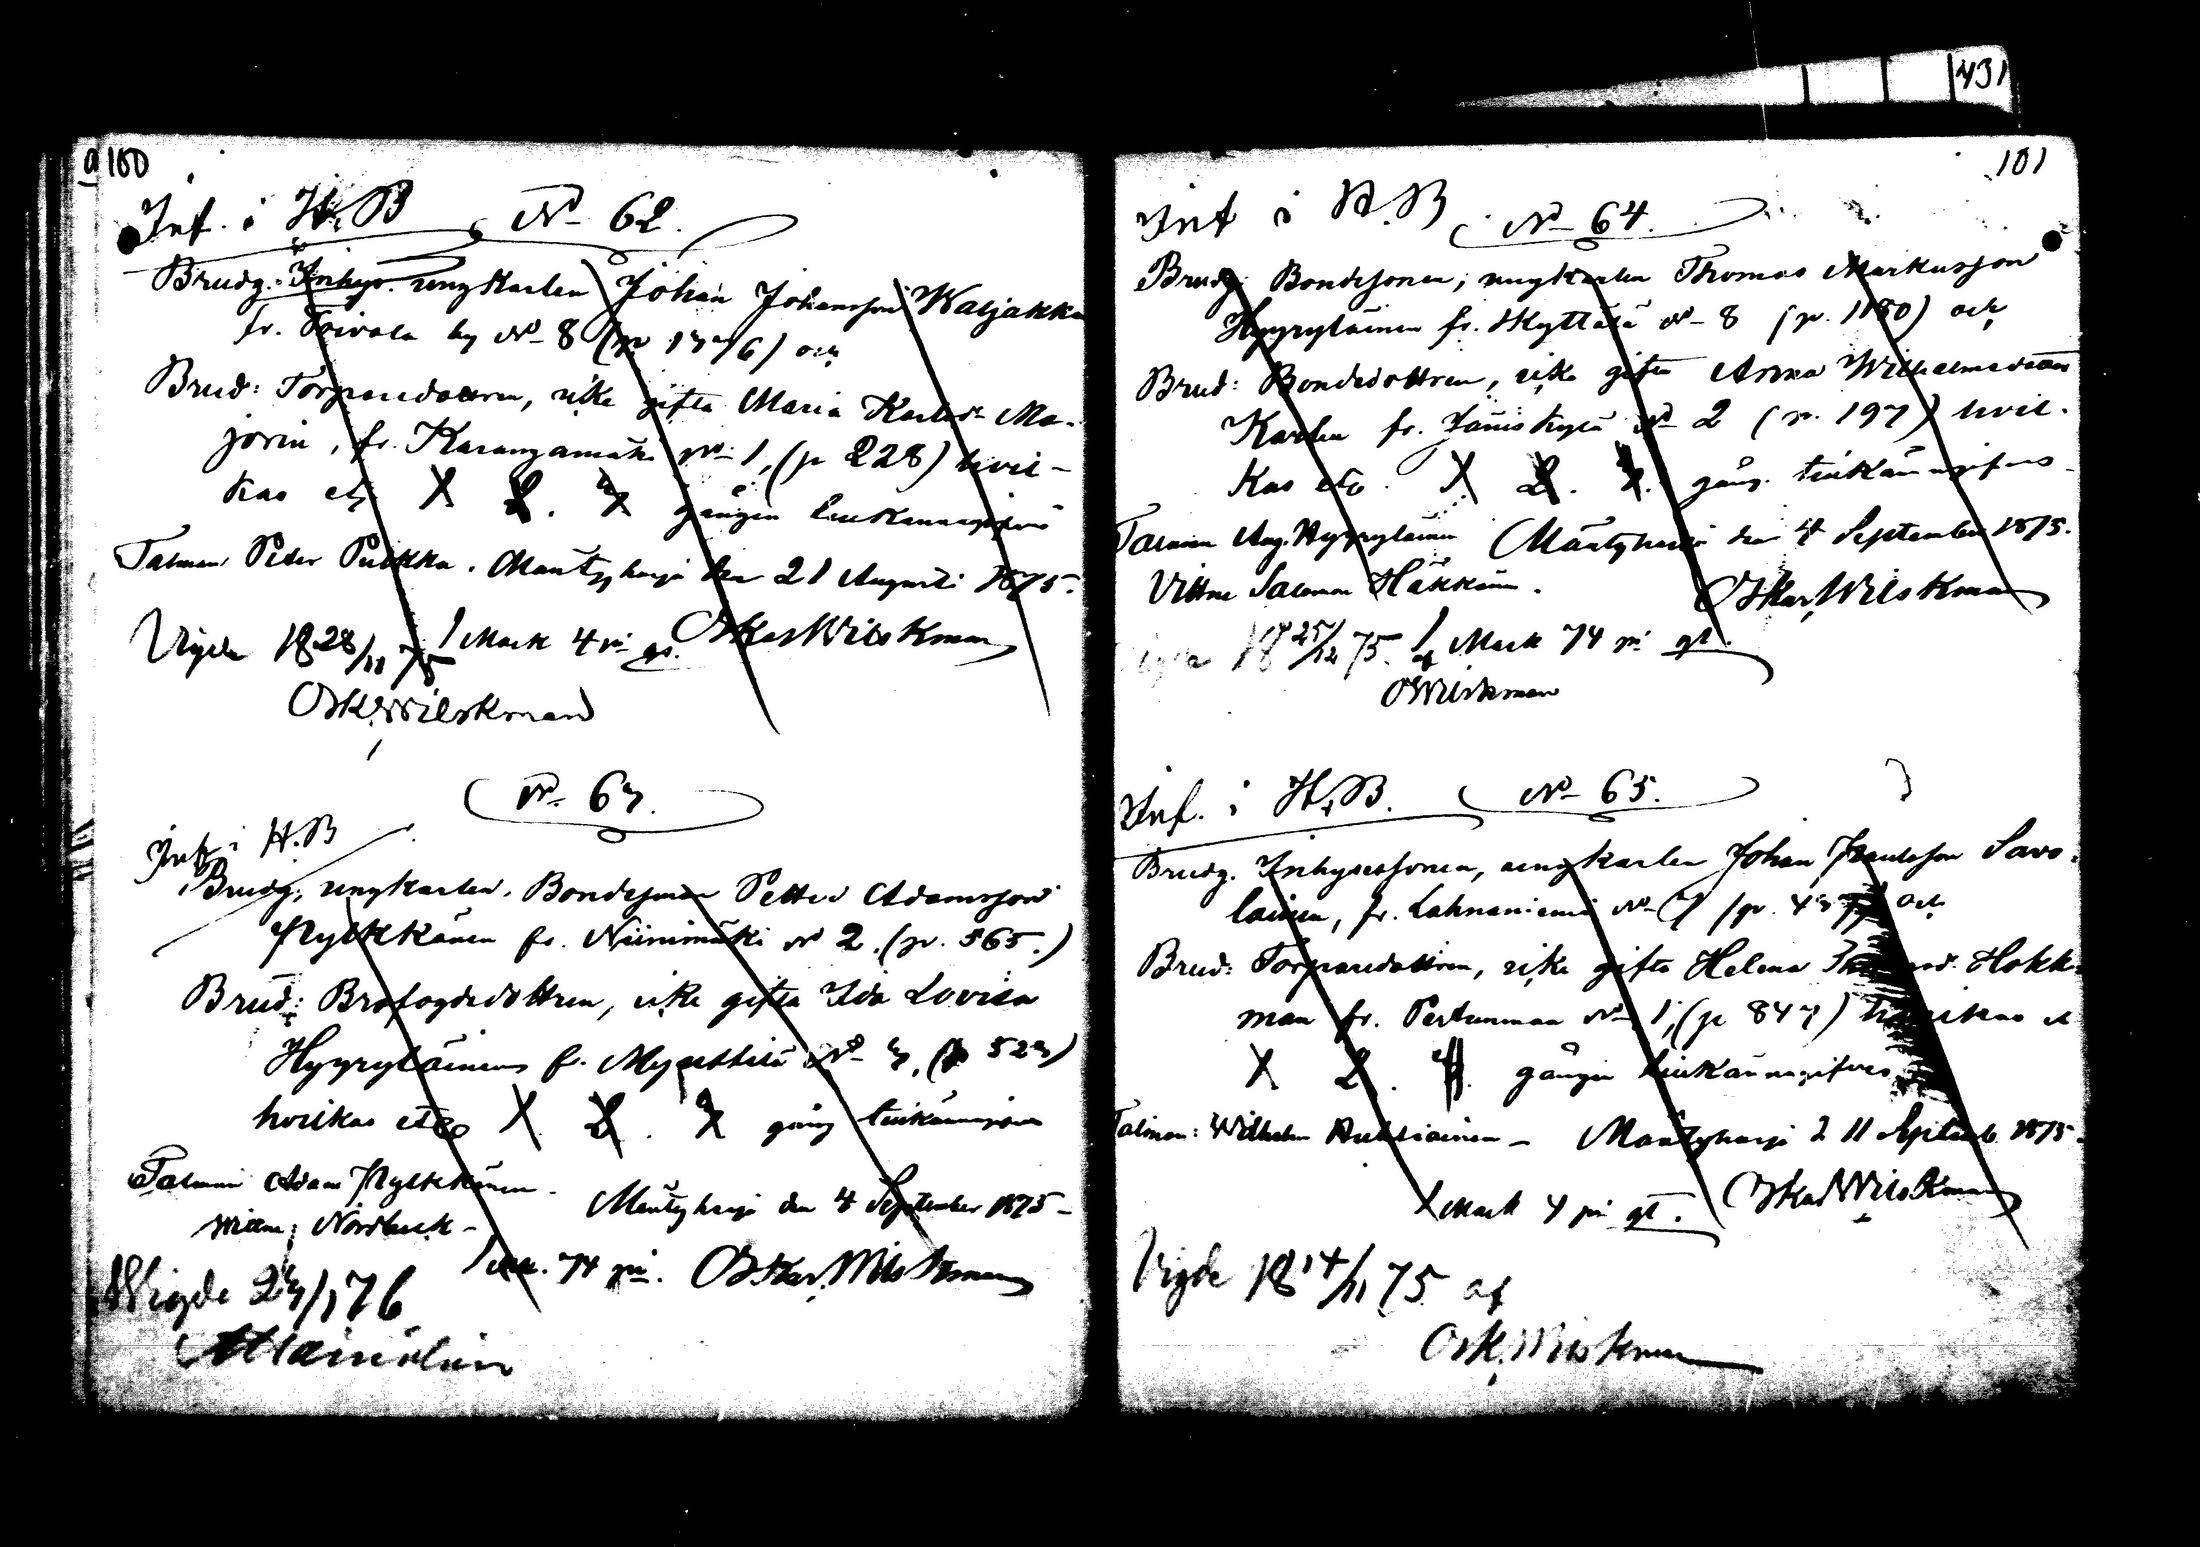 100
Inf. i H.B No 62.
Brudg. Inhys. ungkarlen Johan Johansson Waljakka
fr. Toivola by No 8 (p 1336) och
Brud: Torparedottren, icke gifta Maria Karlsdr Ma-
jorin, fr. Karangamäki No 1, (p 228) hvil-
kas etc 1 2. 3 gången tillkännagifves
Talman Peter Pulkka. Mäntyharju den 21 Augusti 1875.
Vigde 18 28/11 75 1 Mark 4 pi gt. Oskar Wilskman
Osk. Wilskman
No 63.
Inf i H.B
Brudg. ungkarlen, Bondesonen Petter Adamsson
Nylkkänen fr. Niinimäki No 2. (p. 565.)
Brud: Brofogdedottren, icke gifta Ida Lovisa
Hyyryläinen fr. No 3, (p 523)
hvilkas etc 1. 2. 3 gång tillkännagifves
Talman Adam
Vittne: Nordbeck - Mäntyharju den 4 September 1875 -
1 Mk. 74 pi. Oskar Wilskman
Wigde 23/1 76
431
101
Inf i H.B No 64.
Brudg: Bondesonen, ungkarlen Thomas Markusson
Hyyryläinen fr. Kyttälä No 8 (p. 1180) och
Brud: Bondedottren, icke gifta Anna Wilhelmsdotter
Karhu fr. Jäniskylä No 2 (p. 197) hvil-
kas etc. 1 2. 3. gång. tillkännagifves
Talman Aug. Hyyryläinen Mäntyharju den 4 September 1875.
Vittne Salomon Häkkinen. Oskar Wilskman
Vigde 18 25/12 75. 1 Mark 74 pi gt.
OWilskman
Inf. i H.B. No 65.
Brudg. Inhysessonen, ungkarlen Johan Paulsson Savo-
lainen, fr. Lahnaniemi No 7 (p. och
Brud: Torparedottren, icke gifta Helena Hokk-
man fr. Pertunmaa No 1, (p 847) hvilkas et
1 2. 3. gången tillkännagifves
Talman: Wilhelm Auktiainen - Mäntyharju d 11 Septemb. 1875.
1 Mark 4 pi gt. Oskar Wilskman
Vigde 18 14/11 75 af
Osk. Wilskman